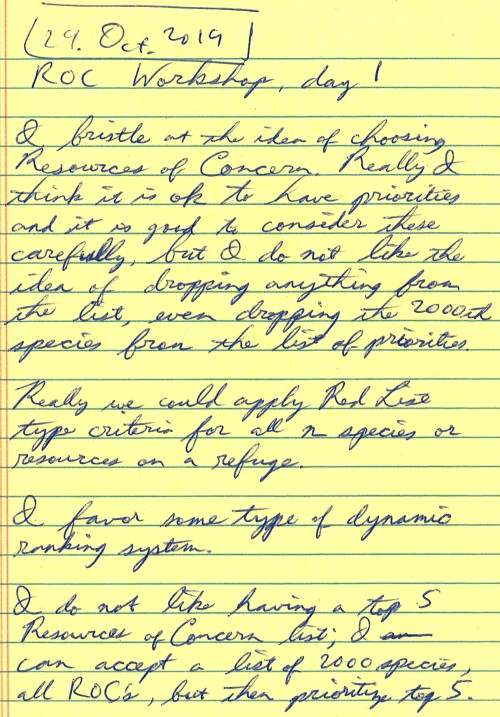 29. Oct. 2019
ROC Workshop, day 1
I bristle at the idea of choosing
Resources of Concern. Really I
think it is ok to have priorities
and it is good to consider these
carefully, but I do not like the
idea of dropping anything from
the list, even dropping the 2000th
species from the list of priorities.
Really we could apply Red List
type criteria for all n species or
resources on a refuge.
I favor some type of dynamic
ranking system.
I do not like having a top 5
Resources of Concern list; I
can accept a list of 2000 species,
all ROC's, but then prioritize top 5.